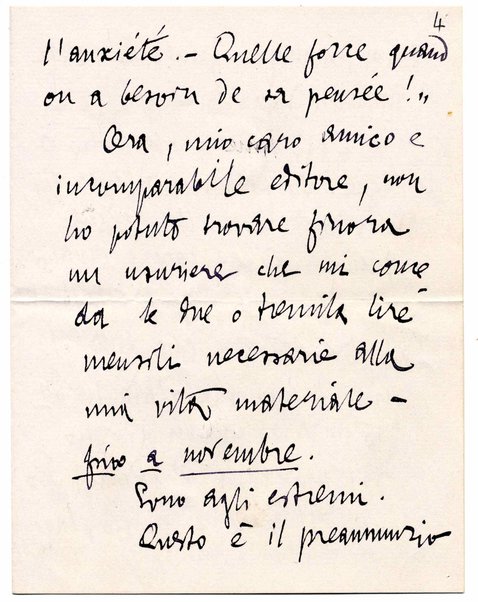 4
l'anxiété. – Quelle force quand
on a besoin de sa pensée!"
Ora, mio caro amico e
incomparabile editore, non
ho potuto trovare finora
un usuriere che mi conce
da le due o tremila lire
mensili necessarie alla
mia vita materiale –
fino a novembre.
Sono agli estremi.
Questo è il preannunzio